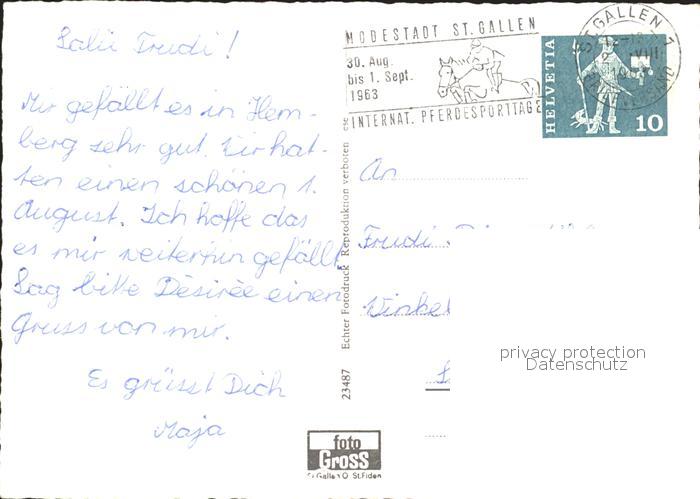 Salü Trudi!
Mir gefällt es in Hem-
berg sehr gut. Wir hat-
ten einen schönen 1.
August. Ich hoffe das
es mir weiterhin gefällt
Sag bitte Désirée einen
Gruss von mir.
Es grüsst Dich
Maja
MODESTADT ST.GALLEN
30. Aug.
bis 1. Sept.
1963
INTERNAT. PFERDESPORTTAGE
ST.GALLEN
VIII
HELVETIA
10
An
Trudi
Winkel
privacy protection
Datenschutz
23487 Echter Fotodruck Reproduktion verboten
foto
Gross
St Gallen O St.Fiden